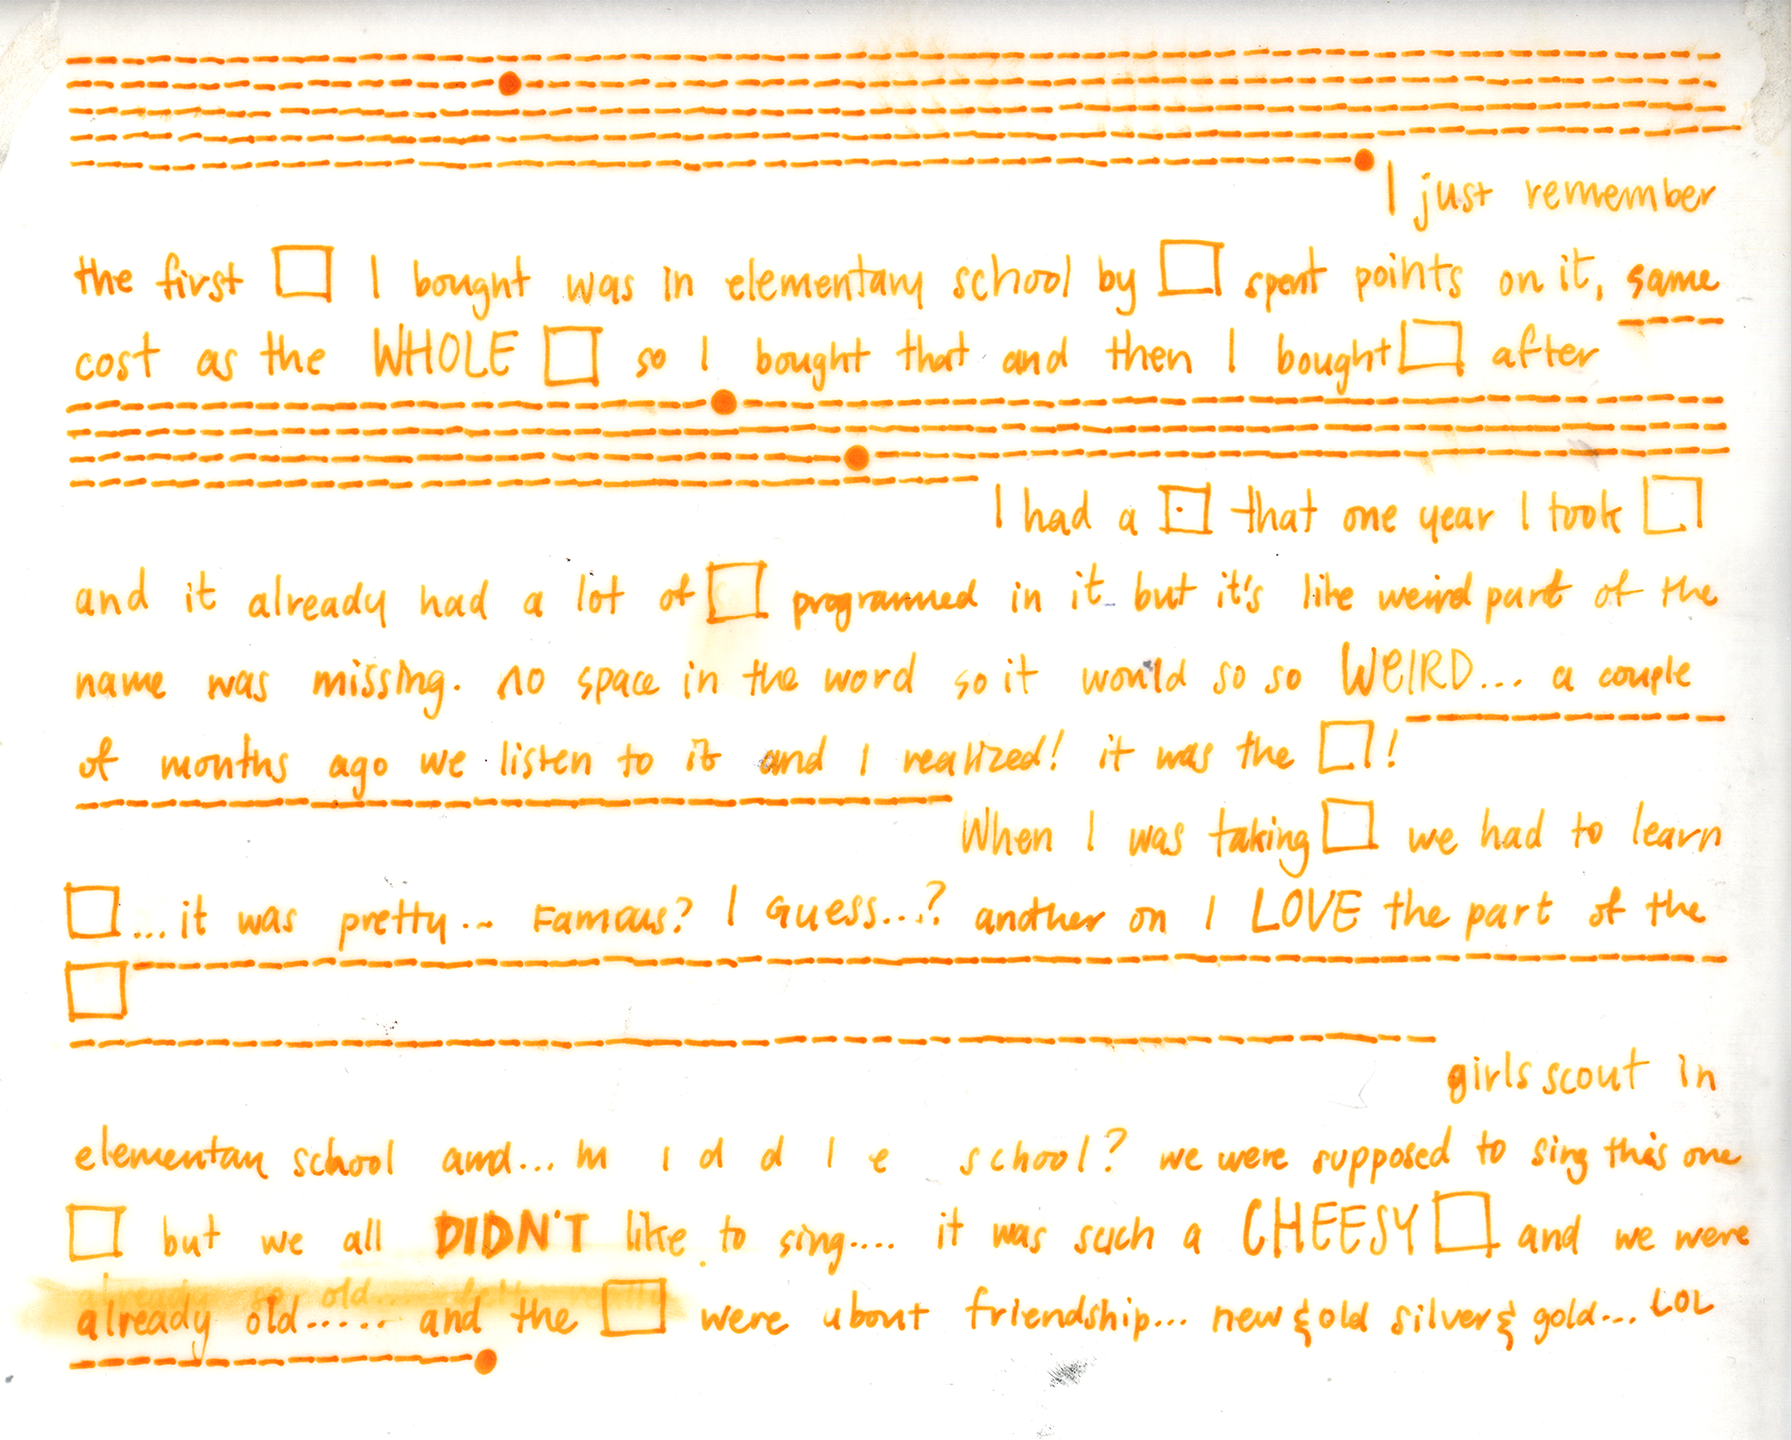 I just remember
the first □ I bought was in elementary school by □ spent points on it, same
cost as the WHOLE □ so I bought that and then I bought □ after
I had a □ that one year I took □
and it already had a lot of □ programmed in it but it's like weird part of the
name was missing. no space in the word so it would so so WEIRD... a couple
of months ago we listen to it and I realized! it was the □!
When I was taking □ we had to learn
□...it was pretty... Famous? I Guess...? another on I LOVE the part of the
□
girls scout in
elementary school and... m i d d l e school? we were supposed to sing this one
□ but we all DIDN'T like to sing.... it was such a CHEESY □ and we were
already old..... and the □ were about friendship... new & old silver & gold... LOL